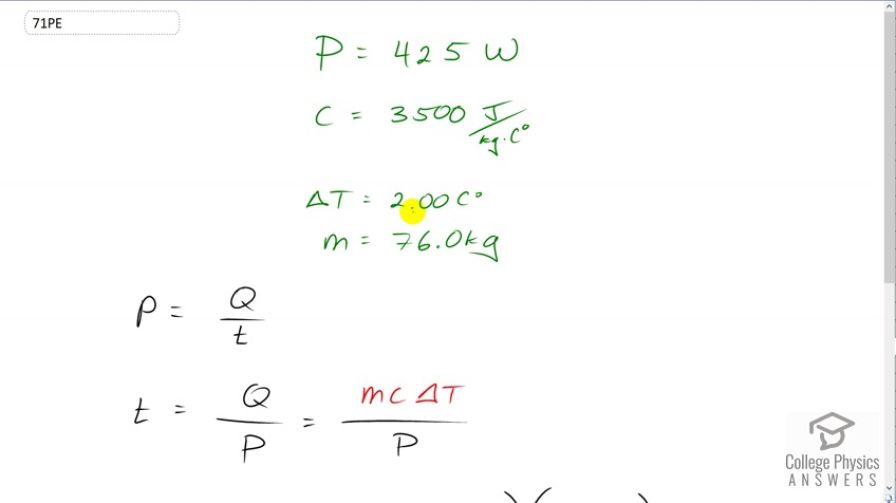 71PE
P = 425 W
C = 3500 J/kg·C°
ΔT = 2.00 C°
m = 76.0kg
P = Q/t
t = Q/P = mcΔT/P
College Physics
ANSWERS